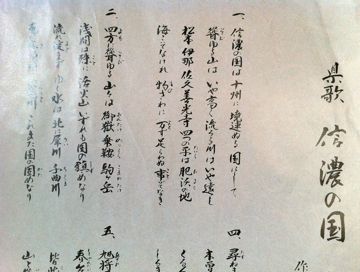 県歌 信濃の国
作
一、信濃の国は十州に 境連ぬる国にして
聳ゆる山はいや高く 流るる川はいや遠し
松本 伊那 佐久 善光寺 四つの平は肥沃の地
海こそなけれ 物さわに 万ず足らわぬ事ぞなき
二、四方に聳ゆる山々は 御嶽 乗鞍 駒ヶ岳
浅間は殊に活火山 いずれも国の鎮めなり
流れ淀まずゆく水は 北に犀川 千曲川
南に木曽川 天竜川 これまた国の固めなり
四、尋ね
木曽
五、旭将
春台